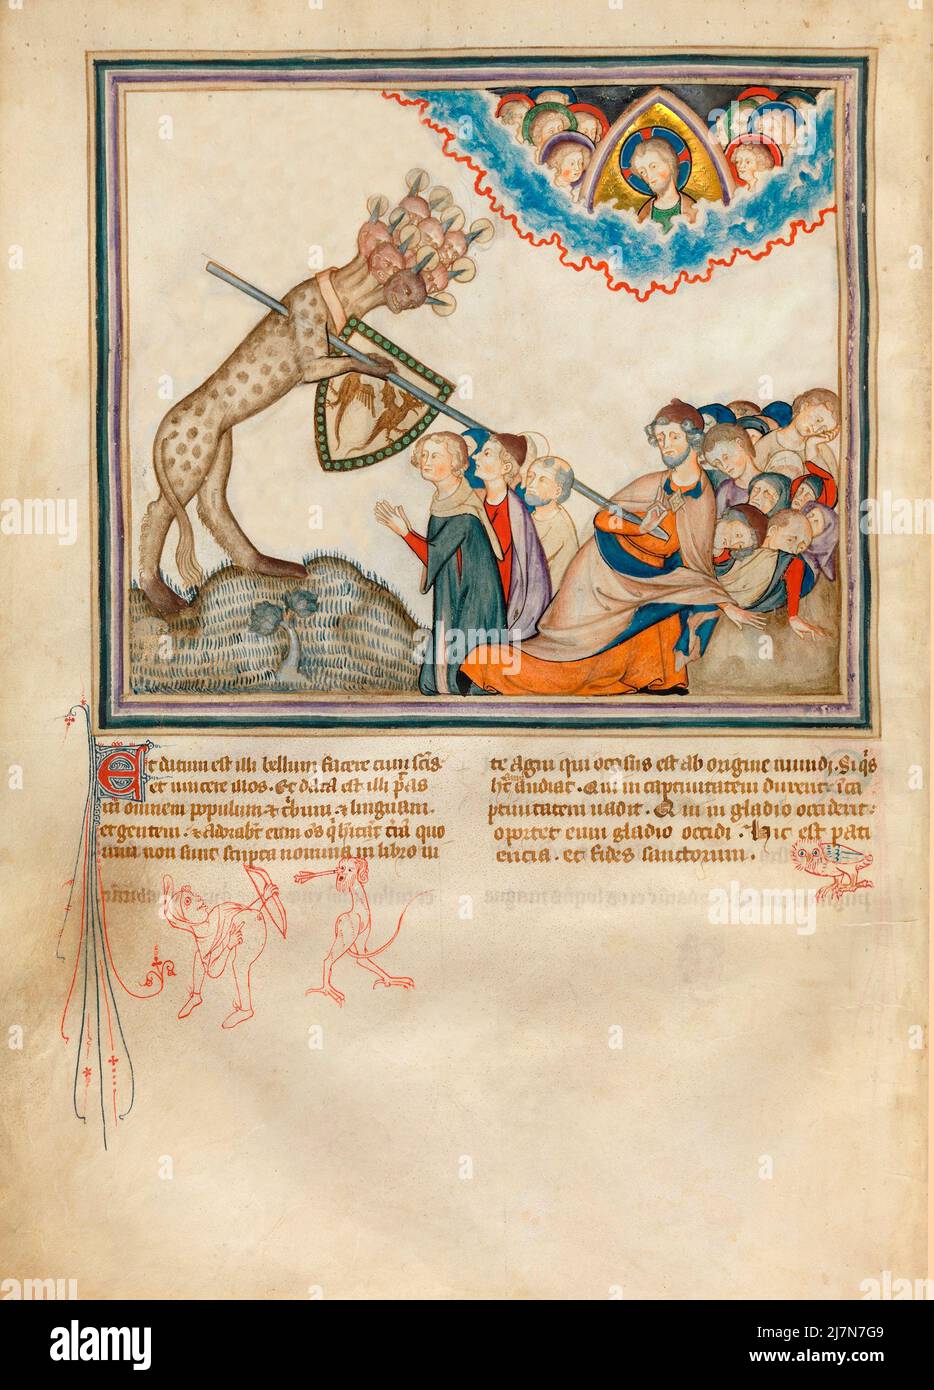 Et datum est illi bellum facere cum sc̄is
et uincere illos. Et data est illi p̄tas
in omnem populum ⁊ tͥbum ⁊ linguam
et gentem. ⁊ adorab̄t eum om̄s q̄ h̄itāt t̄rā quo
rum non sunt scripta nomina in libro ui
te agni qui occisus est ab origine mundi. Si qͥs
h̄t aurem audiat. Qui in captiuitatem duxerit: in ca
ptiuitatem uadit. Qui in gladio occiderit:
oportet eum gladio occidi. Hic est pati
encia. et fides sanctorum.
alamy
Image ID: 2J7N7G9
www.alamy.com